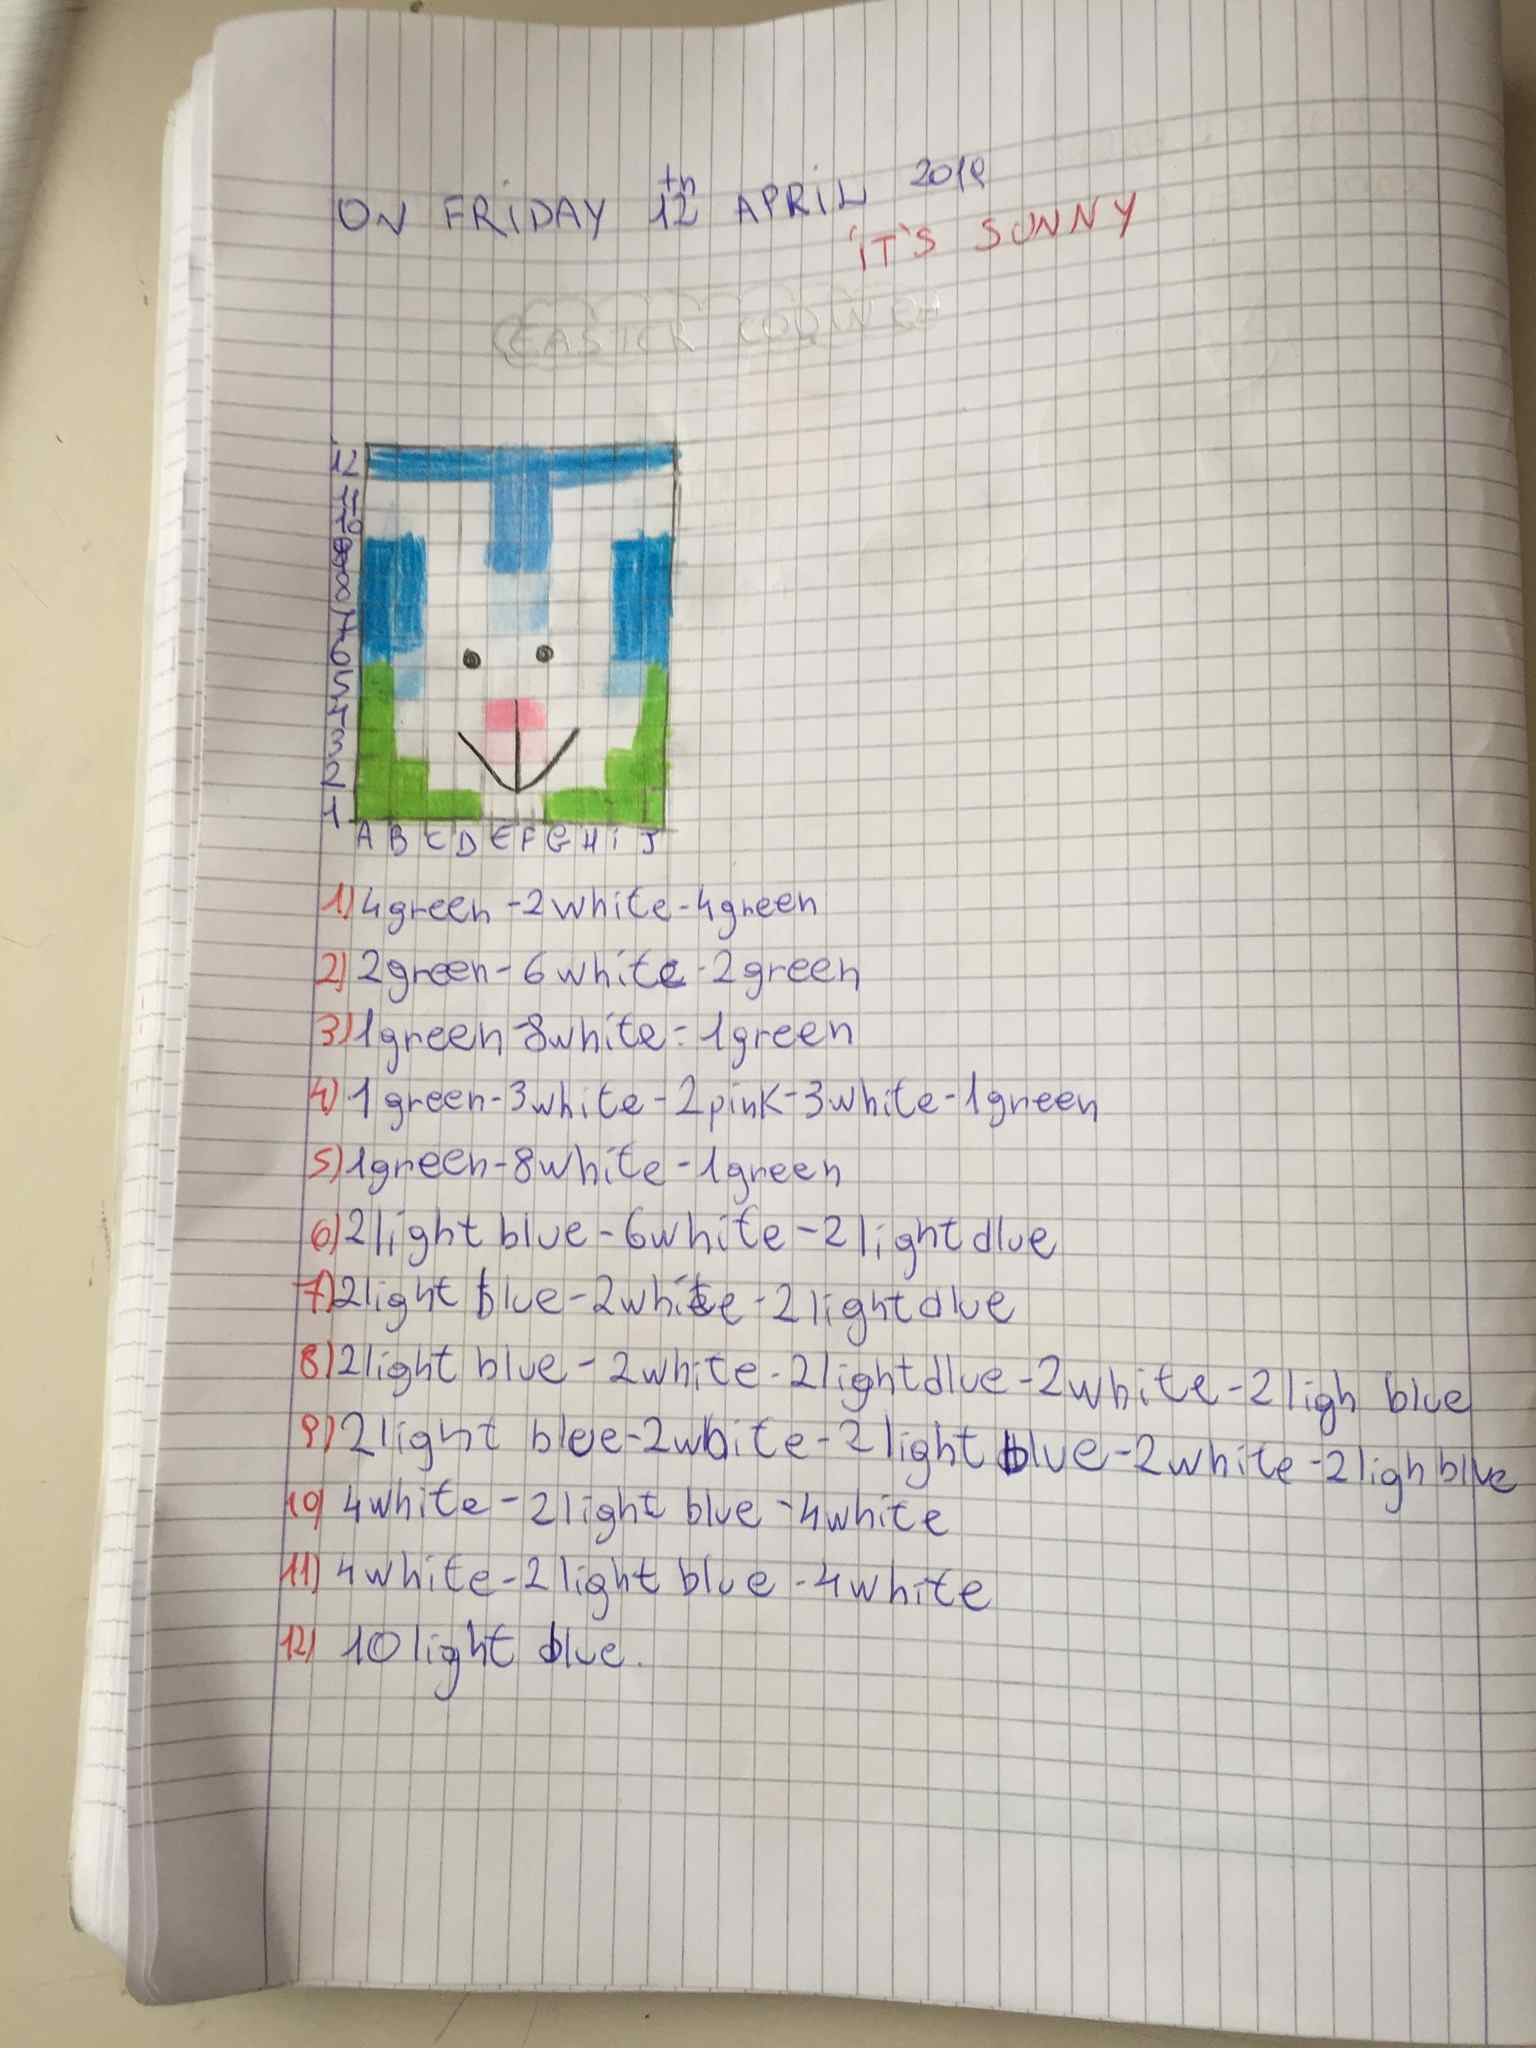 ON FRiDAY 12th APRiL 2019
'iT'S SUNNY
EASTER CODING
12
11
10
9
8
7
6
5
4
3
2
1
A B C D E F G H i J
1) 4green-2white-4green
2) 2green-6white-2green
3) 1green-8white-1green
4) 1green-3white-2pink-3white-1green
5) 1green-8white-1green
6) 2light blue-6white-2lightdlue
7) 2light blue-2white-2lightdlue
8) 2light blue-2white-2lightdlue-2white-2ligh blue
9) 2light blue-2white-2light blue-2white-2lighblue
10) 4white-2light blue-4white
11) 4white-2light blue-4white
12) 10light blue.